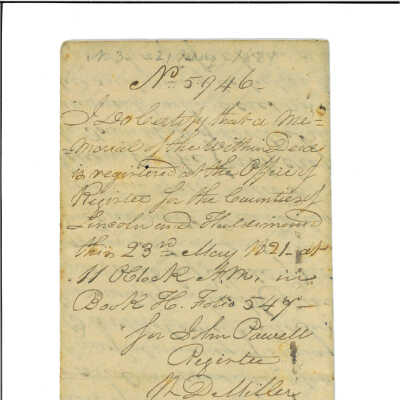 No. 5946
I Do Certify that a Me-
-morial of the Within Deed
is registered at the Office of
Register for the Counties of
Lincoln and Haldimand
this 23rd May 1821 at
11 OClock A.M. in
Book H. Folio 547
for John Powell
Register
W D Miller